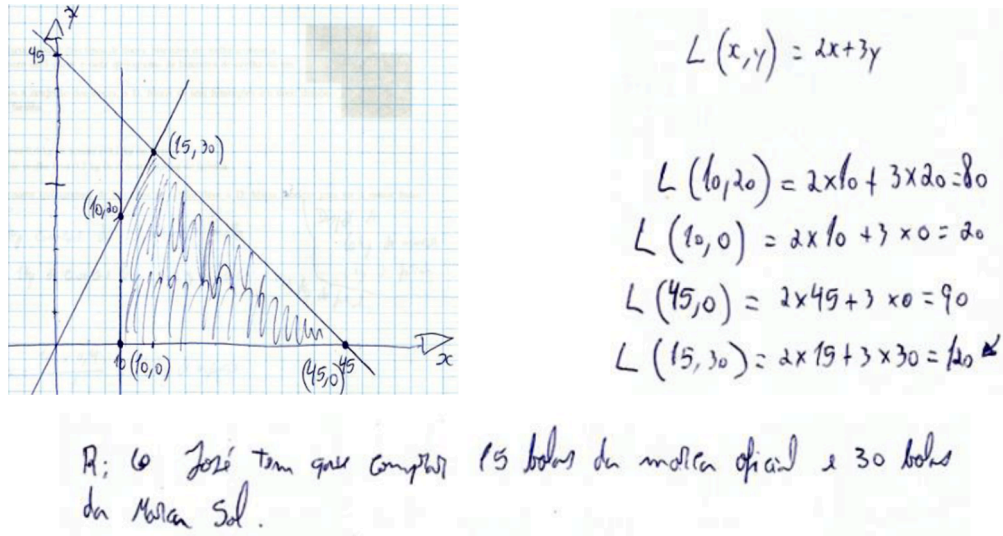 y
45
(15, 30)
(10,20)
10 (10,0)
(45,0) 45
x
L (x,y) = 2x+3y
L (10,20) = 2x10 + 3x20=80
L (10,0) = 2x10 +3 x0= 20
L (45,0) = 2x45+3 x0=90
L (15,30)= 2x15+3x30=120
R: O José tem que comprar 15 bolas da marca oficial e 30 bolas
da Marca Sol.